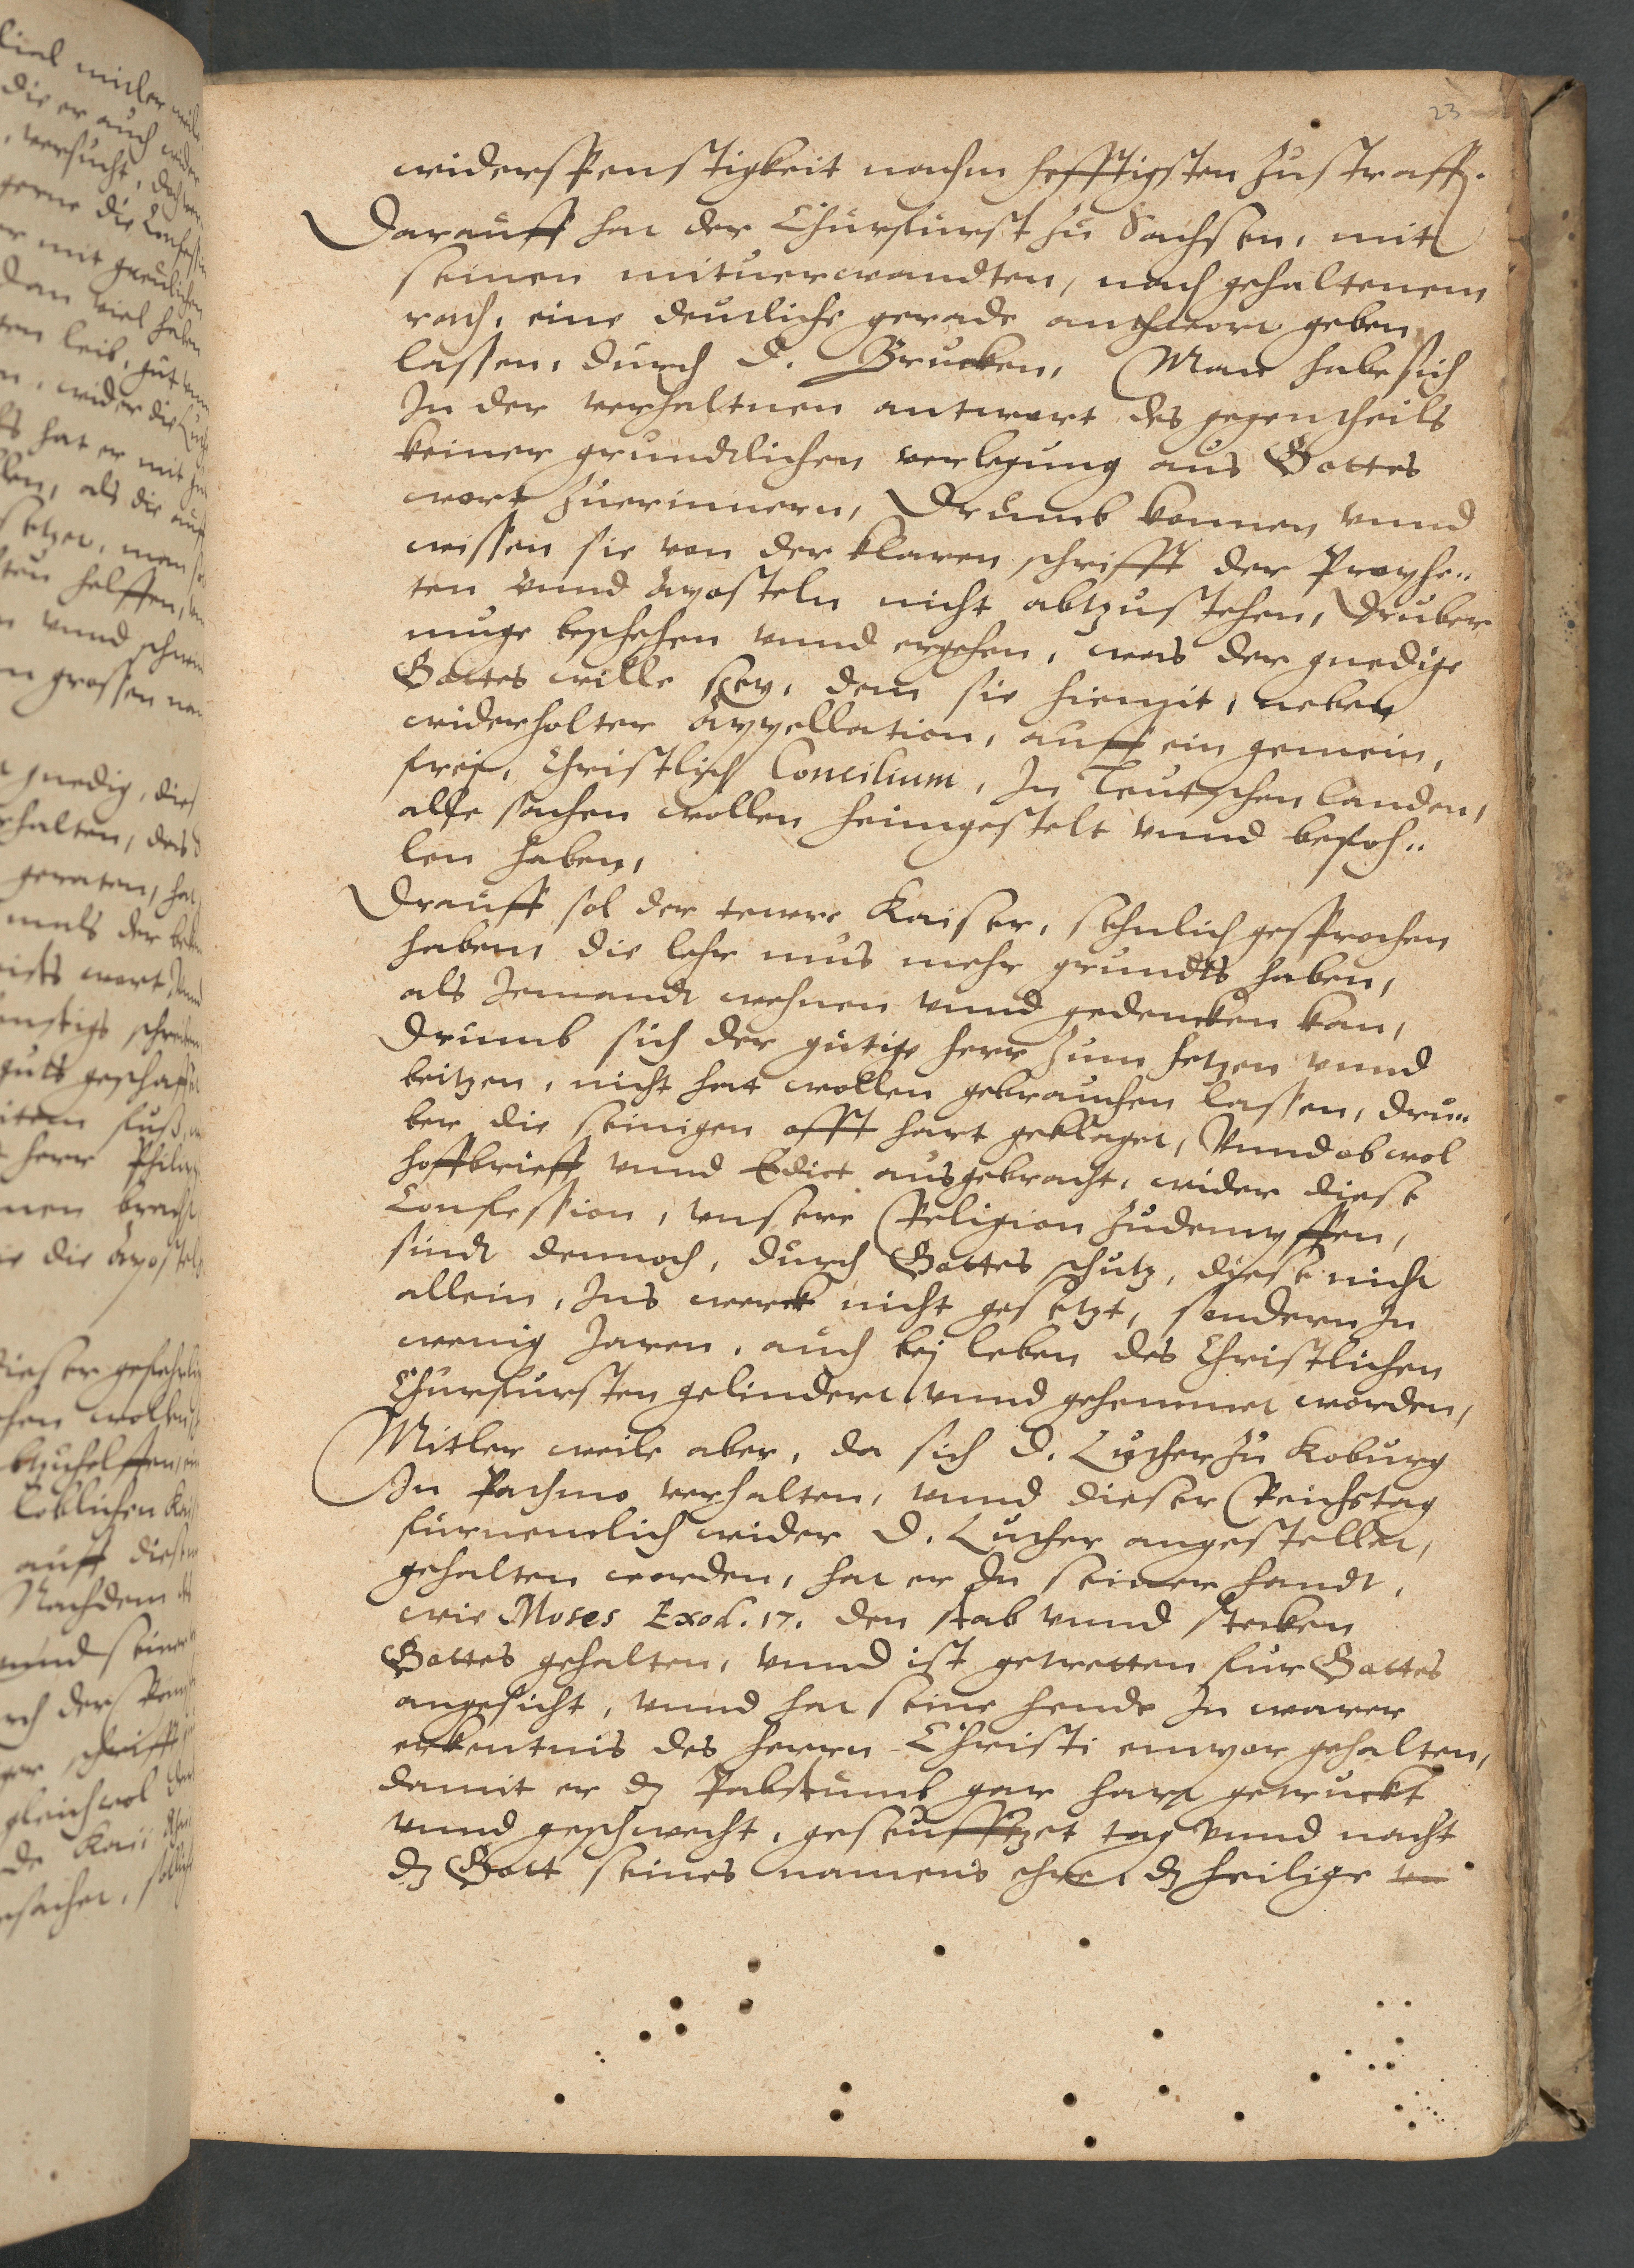 23
widerspenstigkeit nachm hefftigsten zustraffen.
Darauff hat der Churfürst zu Sachsen, mit
seinen mituerwandten, nach gehaltenem
rath, eine deutliche gerade anthwort geben
lassen, durch D. Brucken, Man habe sich
In der verhaltnen antwort des gegentheils
keiner grundlichen verlegung aus Gottes
wort zuerinnern, Drumb konnen vnnd
wissen sie von der klaren schrifft der Prophe„
ten vnnd Aposteln nicht abtzustehen, Druber
muge beschehen vnnd ergehen, was der gnedige
Gottes wille sey, dem sie hiemit, neben
widerholter Appellation, auff ein gemein,
frei, Christlich Concilium, In Teutschen landen,
alle sachen wollen heimgestelt vnnd befoh„
len haben,
Drauff sol der tewre Kaiser, sehnlich gesprochen
haben, die lehr mus mehr grundts haben,
als Jemandt wehnen vnnd gedencken kan,
Drumb sich der gütige herr zum hetzen vnnd
beitzen, nicht hat wollen gebrauchen lassen, dru„
ber die seinigen offt hart geklaget, Vnnd ob wol
hoffbrieff vnnd Edict ausgebracht, wider diese
Confession, vnsere Religion zudempffen,
sindt dennoch, durch Gottes schutz, diese nicht
allein, Ins werck nicht gesetzt, sondern In
wenig Jaren, auch bej leben des Christlichen
Churfursten gelindert vnnd gehemmet worden,
Mitler weile aber, da sich D. Luther zu Koburg
In Pathmo verhalten, vnnd dieser Reichstag
furnemlich wider D. Luther angestellet,
gehalten worden, hat er In seiner handt,
wie Moses Exod. 17. den stab vnnd stecken
Gottes gehalten, vnnd ist getretten fur Gottes
angesicht, vnnd hat seine hende In warer
erkentnis des herrn Christi empor gehalten,
damit er dz Pabstumb gar hart getruckt
vnnd geschwecht, geseufftzet tag vnnd nacht
dz Gott seines namens ehre, dz heilige